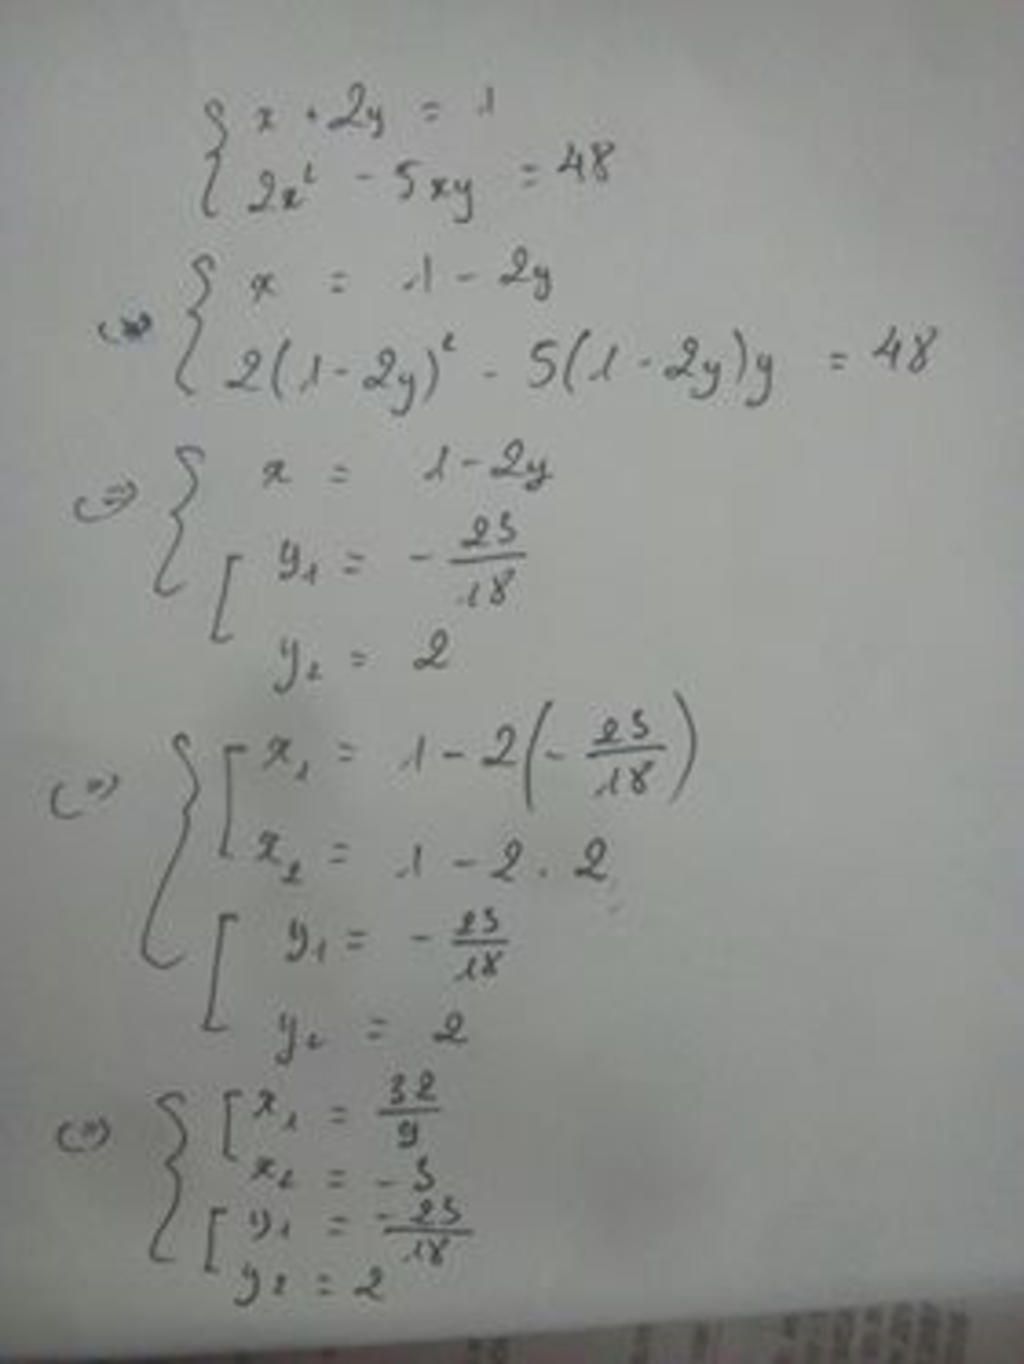 { x + 2y = 1
2x² - 5xy = 48
⇔ { x = 1 - 2y
2(1 - 2y)² - 5(1 - 2y)y = 48
⇔ { x = 1 - 2y
[ y₁ = - 23/18
y₂ = 2
⇔ { [ x₁ = 1 - 2(- 23/18)
x₂ = 1 - 2 . 2
[ y₁ = - 23/18
y₂ = 2
⇔ { [ x₁ = 32/9
x₂ = - 3
[ y₁ = - 23/18
y₂ = 2